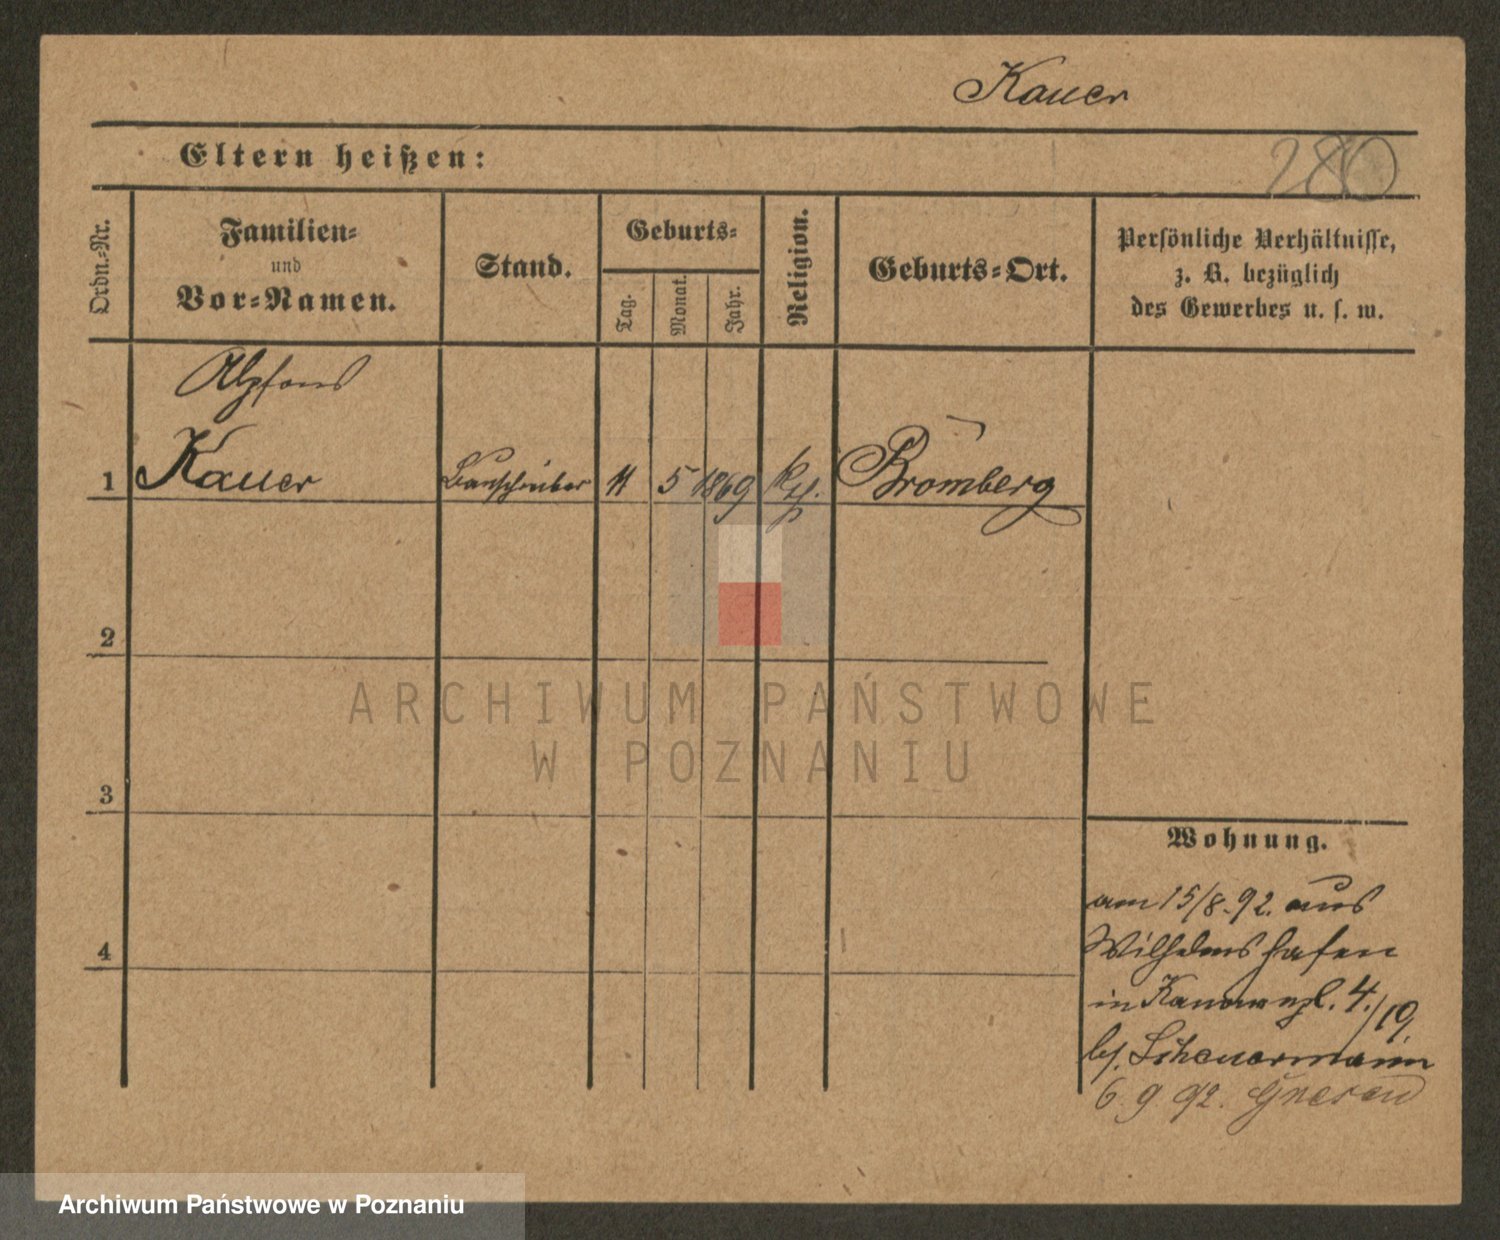 Kauer
Eltern heißen:
280
Ordn.-Nr.
Familien-
und
Vor-Namen.
Stand.
Geburts-
Tag.
Monat.
Jahr.
Religion.
Geburts-Ort.
Persönliche Verhältnisse,
z. B. bezüglich
des Gewerbes u. s. w.
Alpfons
1 Kauer Bauschreiber 11 5 1869 kth. Bromberg
2
3
4
ARCHIWUM PAŃSTWOWE
W POZNANIU
Wohnung.
am 15/8.92. aus
Wilhelmshafen
in Kanonenpl. 4./19.
bf. Scheuermann
6. 9. 92. Gnesen
Archiwum Państwowe w Poznaniu